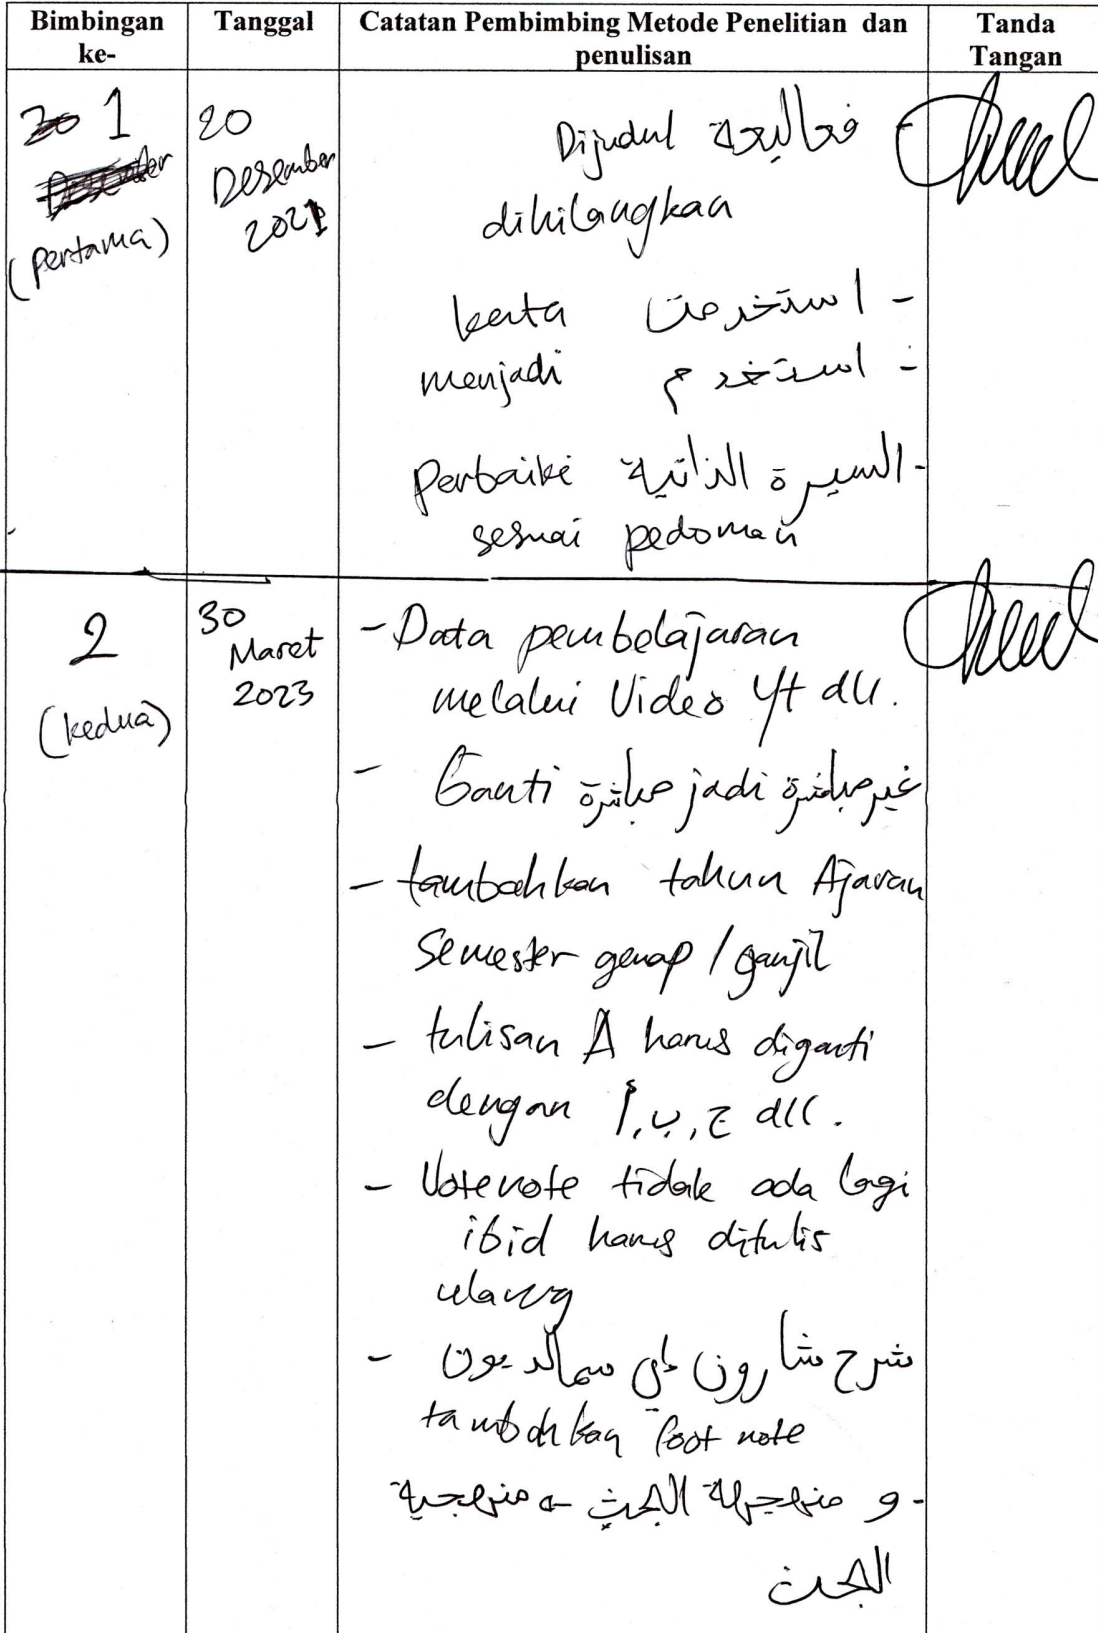 Bimbingan ke-
Tanggal
Catatan Pembimbing Metode Penelitian dan penulisan
Tanda Tangan
1
(pertama)
20
Desember
2021
Dijudul فعاليحة
dihilangkan
- استخدمت kata
- استخدم menjadi
- السيرة الذاتية Perbaiki
sesuai pedoman
2
(kedua)
30
Maret
2023
- Data pembelajaran
melalui Video Yt dll.
- Ganti مباشرة jadi غير مباشرة
- tambahkan tahun Ajaran
Semester genap / ganjil
- tulisan A harus diganti
dengan أ, ب, ج dll.
- Votenote tidak ada lagi
ibid harus ditulis
ulang
- شرح شارون سمالديون
tambahkan foot note
- و منهجيهة البحث منهجية
البحث